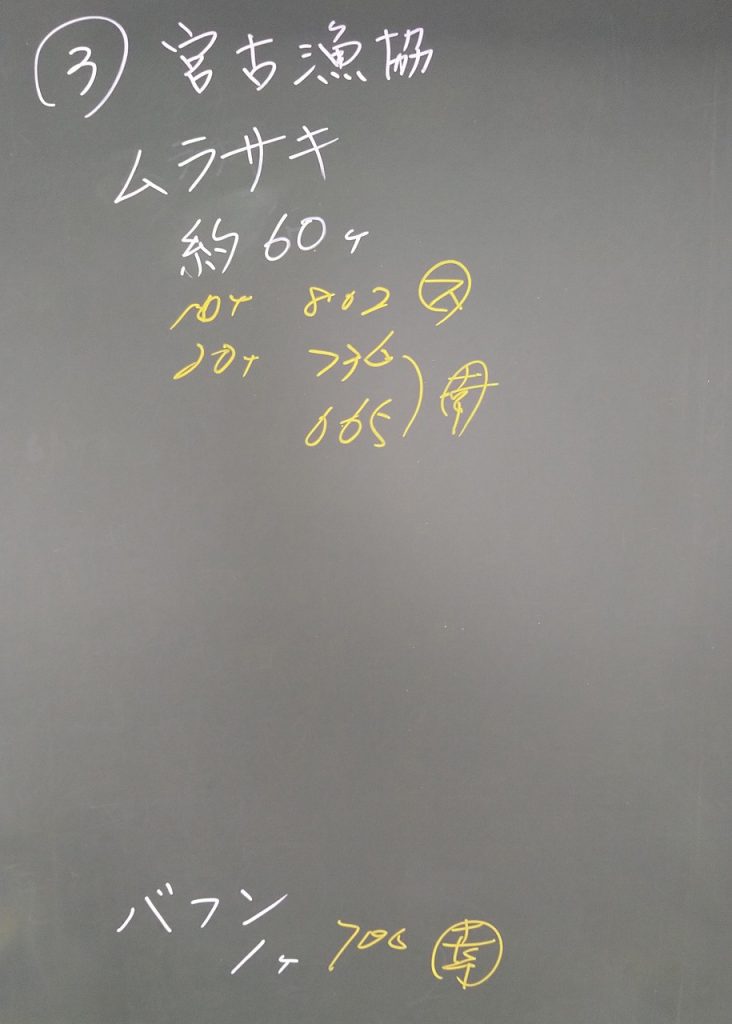 ③ 宮古漁協
ムラサキ
約60ヶ
10ヶ 802 ㋜
20ヶ 736
665
バフン
1ヶ 700